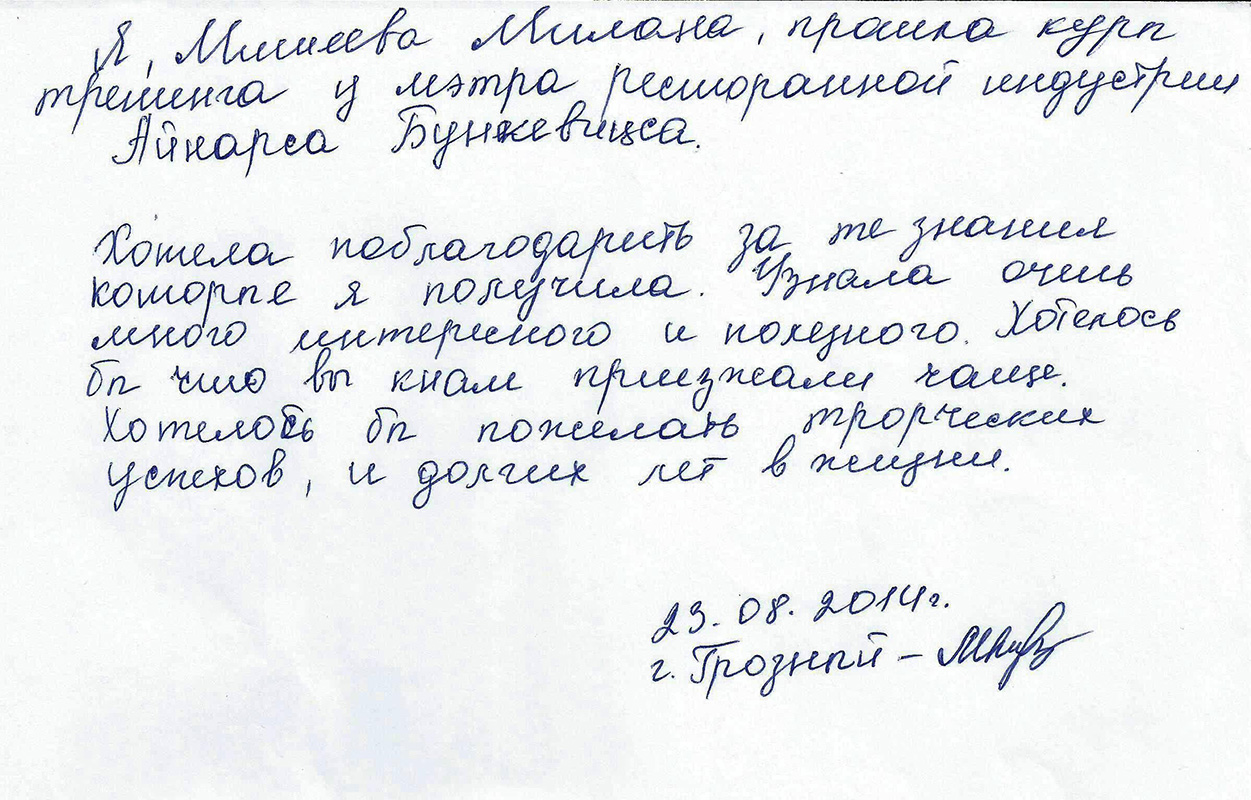 Я, Милана, прошла курп
трешинга у мэтра ресторанной индустрии
Айнарса Бункевицса.
Хотела поблагодарить за те знания
которпе я получила. Узнала очень
много интересного и полезного. Хотелось
бп что вы кнам приезжали чаще.
Хотелось бп пожелать трорческих
успехов, и долгих лет в жизни.
23.08.2014г.
г. Грозный –